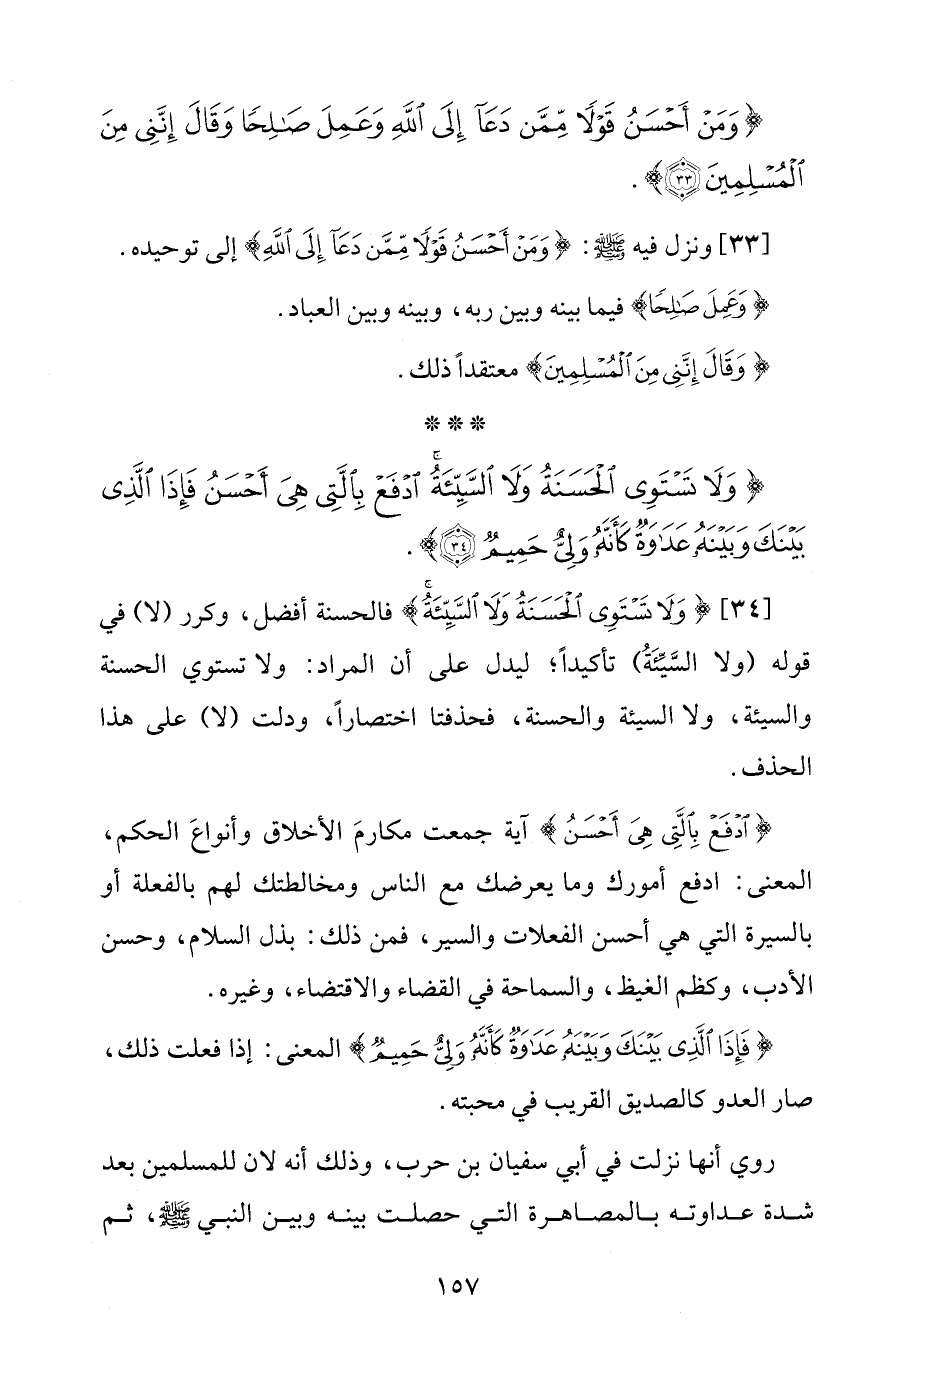 ﴿وَمَنْ أَحْسَنُ قَوْلًا مِّمَّن دَعَآ إِلَى ٱللَّهِ وَعَمِلَ صَـٰلِحًا وَقَالَ إِنَّنِى مِنَ
ٱلْمُسْلِمِينَ ﴿٣٣﴾﴾ .
[٣٣] ونزل فيه ﷺ : ﴿وَمَنْ أَحْسَنُ قَوْلًا مِّمَّن دَعَآ إِلَى ٱللَّهِ﴾ إلى توحيده .
﴿وَعَمِلَ صَـٰلِحًا﴾ فيما بينه وبين ربه، وبينه وبين العباد.
﴿وَقَالَ إِنَّنِى مِنَ ٱلْمُسْلِمِينَ﴾ معتقداً ذلك .
* * *
﴿وَلَا تَسْتَوِى ٱلْحَسَنَةُ وَلَا ٱلسَّيِّئَةُ ۚ ٱدْفَعْ بِٱلَّتِى هِىَ أَحْسَنُ فَإِذَا ٱلَّذِى
بَيْنَكَ وَبَيْنَهُۥ عَدَٰوَةٌ كَأَنَّهُۥ وَلِىٌّ حَمِيمٌ ﴿٣٤﴾﴾ .
[٣٤] ﴿وَلَا تَسْتَوِى ٱلْحَسَنَةُ وَلَا ٱلسَّيِّئَةُ ۚ﴾ فالحسنة أفضل، وكرر (لا) في
قوله (ولا السَّيِّئَةُ) تأكيداً؛ ليدل على أن المراد: ولا تستوي الحسنة
والسيئة، ولا السيئة والحسنة، فحذفتا اختصاراً، ودلت (لا) على هذا
الحذف .
﴿ٱدْفَعْ بِٱلَّتِى هِىَ أَحْسَنُ﴾ آية جمعت مكارمَ الأخلاق وأنواعَ الحكم،
المعنى: ادفع أمورك وما يعرضك مع الناس ومخالطتك لهم بالفعلة أو
بالسيرة التي هي أحسن الفعلات والسير، فمن ذلك: بذل السلام، وحسن
الأدب، وكظم الغيظ، والسماحة في القضاء والاقتضاء، وغيره .
﴿فَإِذَا ٱلَّذِى بَيْنَكَ وَبَيْنَهُۥ عَدَٰوَةٌ كَأَنَّهُۥ وَلِىٌّ حَمِيمٌ﴾ المعنى: إذا فعلت ذلك،
صار العدو كالصديق القريب في محبته .
روي أنها نزلت في أبي سفيان بن حرب، وذلك أنه لان للمسلمين بعد
شدة عداوته بالمصاهرة التي حصلت بينه وبين النبي ﷺ، ثم
١٥٧